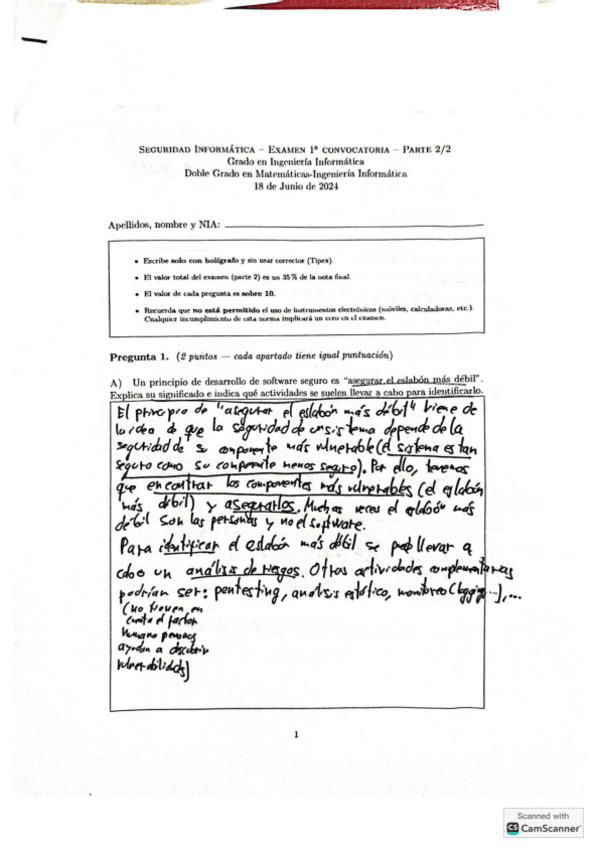 SEGURIDAD INFORMÁTICA – EXAMEN 1ª CONVOCATORIA – PARTE 2/2
Grado en Ingeniería Informática
Doble Grado en Matemáticas-Ingeniería Informática
18 de Junio de 2024
Apellidos, nombre y NIA:
• Escribe solo con bolígrafo y sin usar corrector (Tipex).
• El valor total del examen (parte 2) es un 35% de la nota final.
• El valor de cada pregunta es sobre 10.
• Recuerda que no está permitido el uso de instrumentos electrónicos (móviles, calculadoras, etc.)
Cualquier incumplimiento de esta norma implicará un cero en el examen.
Pregunta 1. (2 puntos — cada apartado tiene igual puntuación)
A) Un principio de desarrollo de software seguro es "asegurar el eslabón más débil".
Explica su significado e indica qué actividades se suelen llevar a cabo para identificarlo.
El principio de "asegurar el eslabón más débil" viene de
la idea de que la seguridad de un sistema depende de la
seguridad de su componente más vulnerable (el sistema es tan
seguro como su componente menos seguro). Por ello, tenemos
que encontrar los componentes más vulnerables (el eslabón
más débil) y asegurarlos. Muchas veces el eslabón más
débil son las personas y no el software.
Para identificar el eslabón más débil se puede llevar a
cabo un análisis de riesgos. Otras actividades complementarias
podrían ser: pentesting, análisis estático, monitoreo (logging...), ...
(no tienen en
cuenta el factor
humano pero nos
ayudan a descubrir
vulnerabilidades)
1
Scanned with
CS CamScanner